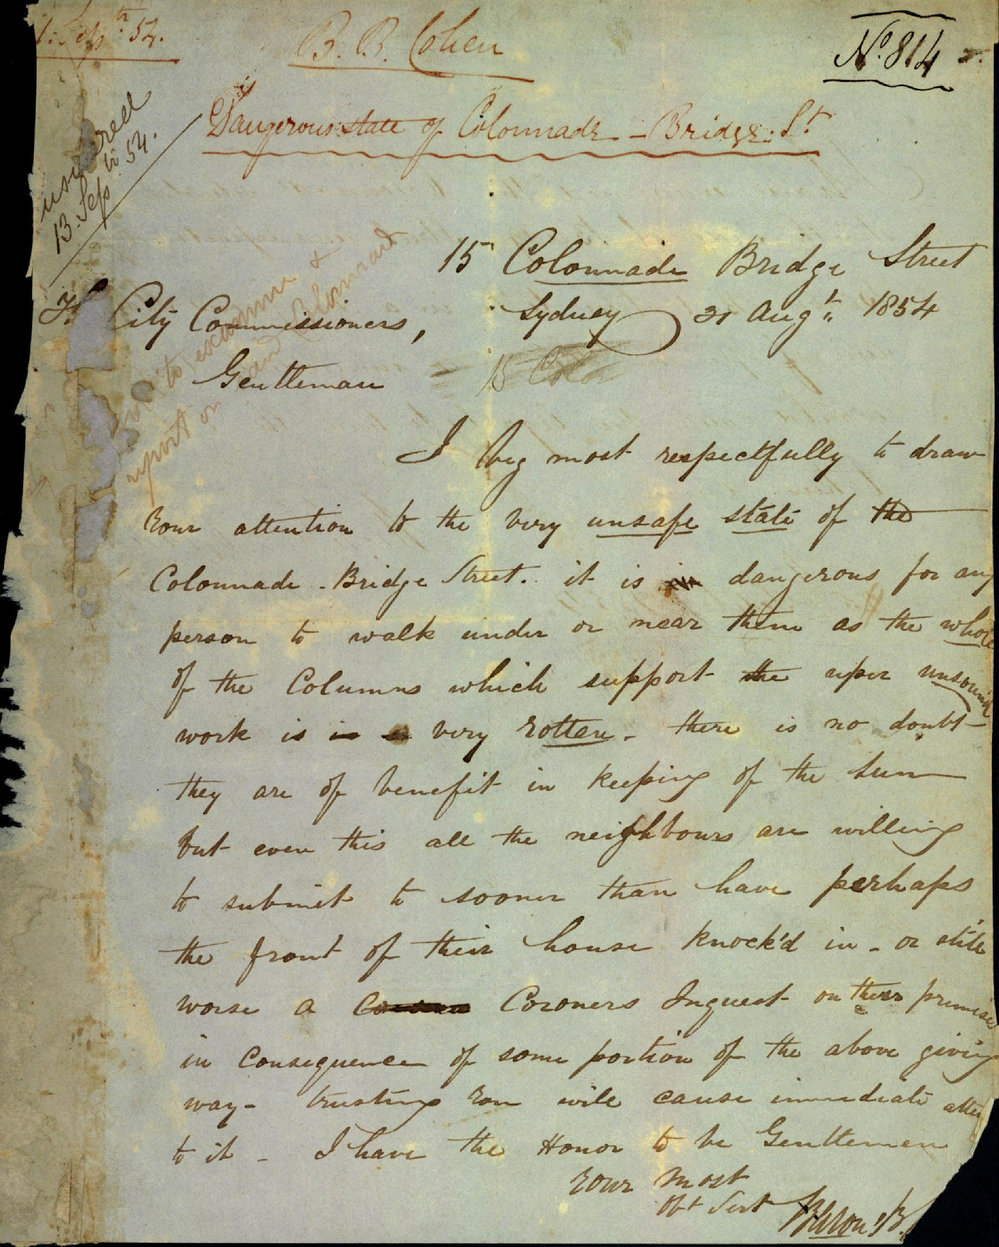 1. Sepr. 54.
B. B. Cohen
No. 814
Dangerous state of Colonnade - Bridge St
13. Sepr 54.
to examine &
report on and Colonnade
15 Colonnade Bridge Street
City Commissioners,
Sydney 31 Augt. 1854
Gentleman
15 Color
I beg most respectfully to draw
Your attention to the very unsafe state of the
Colonnade - Bridge Street. it is dangerous for any
person to walk under or near them as the whole
of the Columns which support the uper unsound
work is is a very rotten - there is no doubt
they are of benefit in keeping of the Sun
but even this all the neighbours are willing
to submit to sooner than have perhaps
the front of their house knock'd in - or still
worse a Coroners Inquest on their premises
in consequence of some portion of the above giving
way - trusting You will cause immediate atten
to it - I have the Honor to be Gentlemen
Your most
Obt Servt